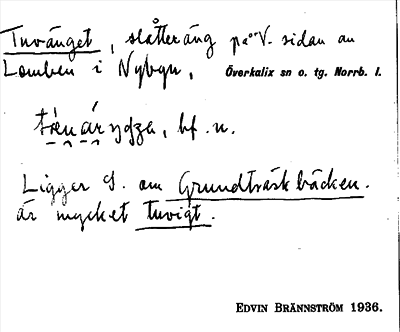 Tuvänget, slåtteräng på V. sidan au
Lomben i Nybyn, Överkalix sn o. tg. Norrb. l.
bf. n.
Ligger S. om Grundträskbäcken.
är mycket tuvigt.
EDVIN BRÄNNSTRÖM 1936.